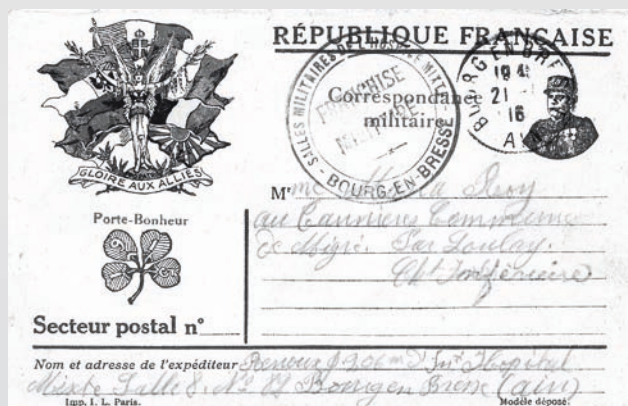 RÉPUBLIQUE FRANÇAISE
Correspondance
militaire
SALLES MILITAIRES DE L'HOSPICE MIXTE
FRANCHISE
MILITAIRE
- BOURG-EN-BRESSE -
BOURG EN BRESSE
21
16
AIN
GLOIRE AUX ALLIÉS
Porte-Bonheur
Secteur postal n°
Mr me Roy
au Commune
de Migré. Par Loulay.
Cht Inférieure
Nom et adresse de l'expéditeur Renoux 206me Inf Hopital
Mixte Salle 8. No Bourg en Bresse (ain)
Imp. I. L. Paris.
Modèle déposé.